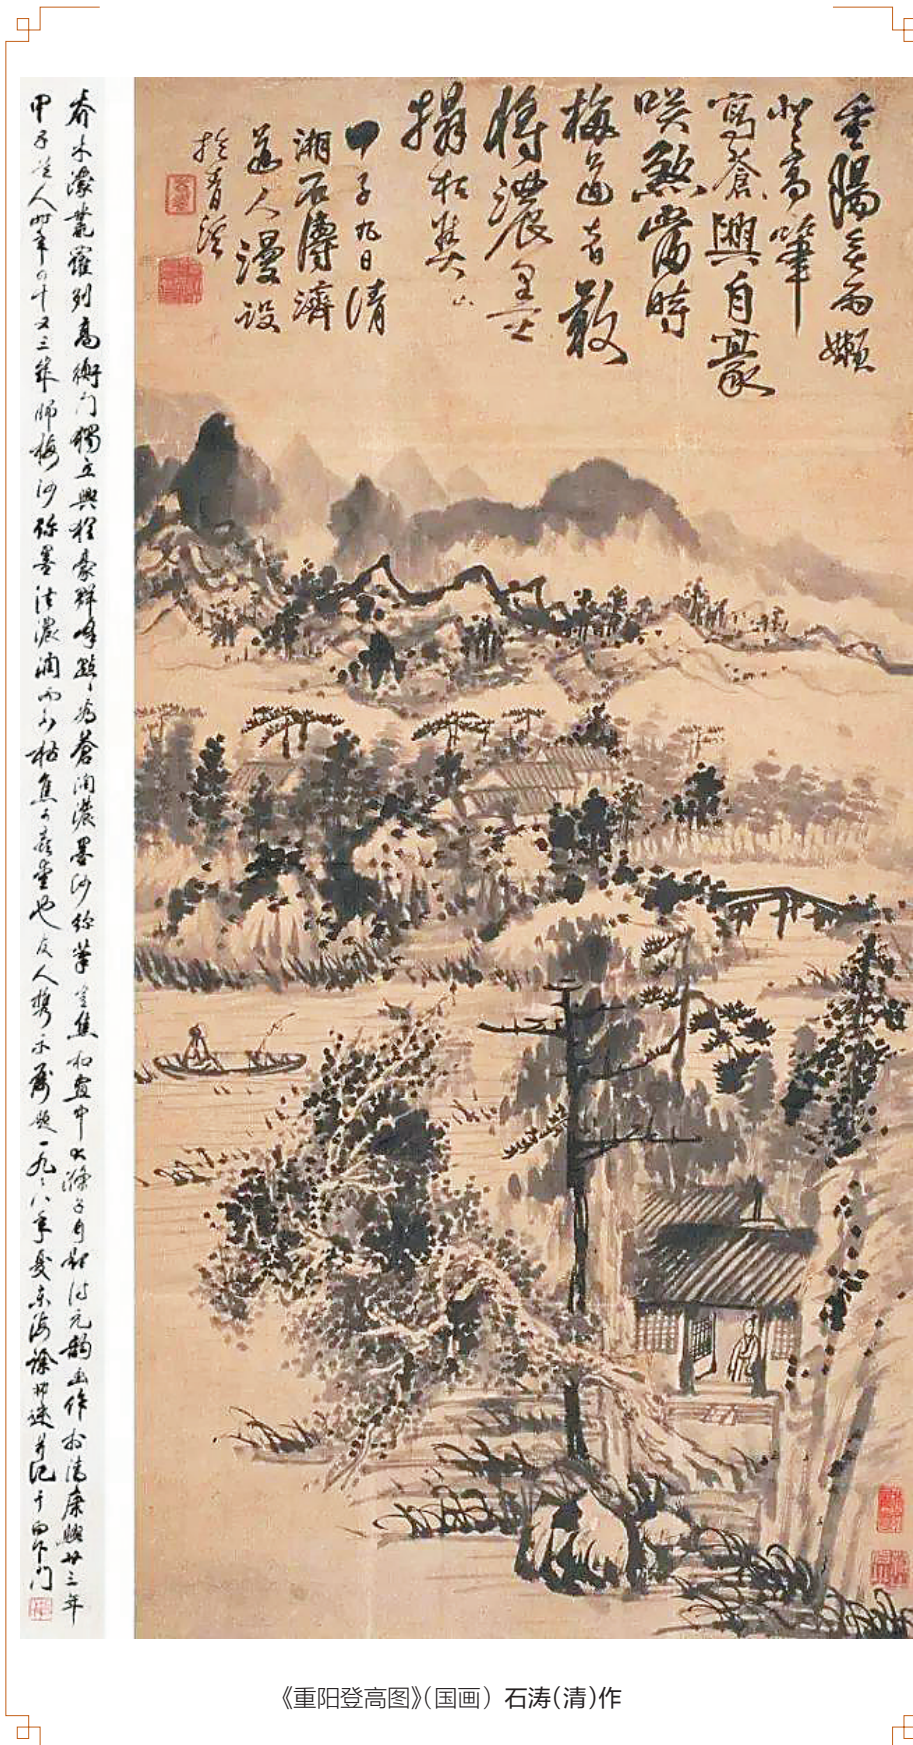 重陽無雨嬾
登高筆
寫蒼興自豪
咲煞當時
梅道者敢
將濃墨
搨枯
甲子九日清
湘石濤濟
道人漫設
於青溪
喬木深叢羅列高衡門獨立興猶豪群峰點點為蒼潤濃墨沙弥筆豈焦和畫中大滌子自題詩元韵畫作於清康熙廿三年
甲子道人時年四十又三師梅沙弥墨法濃潤而不枯焦可喜愛也友人攜示屬題一九八年夏東海徐邦達并記于
《重阳登高图》(国画) 石涛(清)作